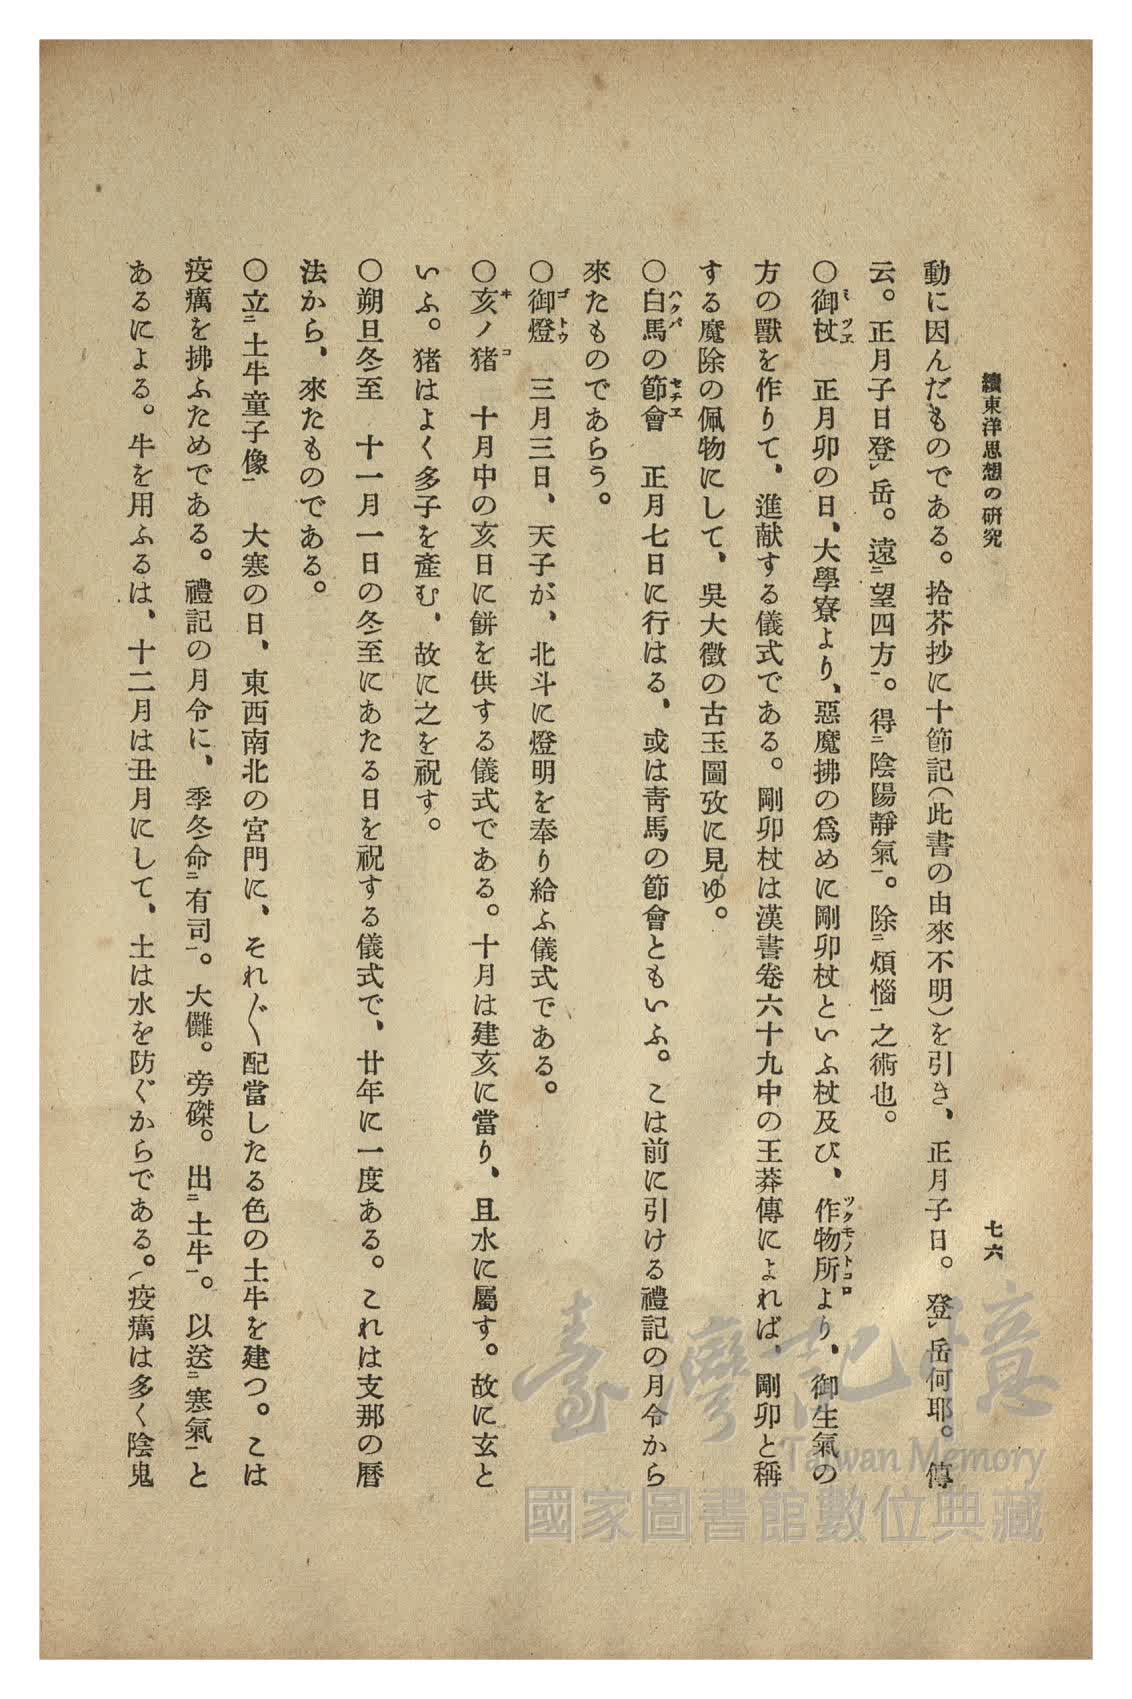 續東洋思想の研究
七六
動に因んだものである。拾芥抄に十節記(此書の由來不明)を引き、正月子日。登レ岳何耶。傳
云。正月子日登レ岳。遠二望四方一。得二陰陽靜氣一。除二煩惱一之術也。
〇御杖 正月卯の日、大學寮より、惡魔拂の爲めに剛卯杖といふ杖及び、作物所より、御生氣の
方の獸を作りて、進献する儀式である。剛卯杖は漢書卷六十九中の王莽傳によれば、剛卯と稱
する魔除の佩物にして、吳大徵の古玉圖攷に見ゆ。
〇白馬の節會 正月七日に行はる、或は靑馬の節會ともいふ。こは前に引ける禮記の月令から
來たものであらう。
〇御燈 三月三日、天子が、北斗に燈明を奉り給ふ儀式である。
〇亥ノ猪 十月中の亥日に餅を供する儀式である。十月は建亥に當り、且水に屬す。故に玄と
いふ。猪はよく多子を產む、故に之を祝す。
〇朔旦冬至 十一月一日の冬至にあたる日を祝する儀式で、廿年に一度ある。これは支那の曆
法から、來たものである。
〇立二土牛童子像一 大寒の日、東西南北の宮門に、それ〴〵配當したる色の土牛を建つ。こは
疫癘を拂ふためである。禮記の月令に、季冬命二有司一。大儺。旁磔。出二土牛一。以送二寒氣一と
あるによる。牛を用ふるは、十二月は丑月にして、土は水を防ぐからである。(疫癘は多く陰鬼
臺灣記憶
Taiwan Memory
國家圖書館數位典藏